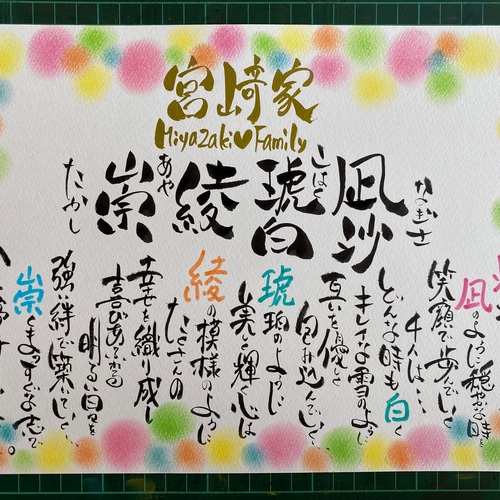 宮﨑家
Miyazaki♥Family
なぎさ
凪沙
こはく
琥白
あや
綾
崇
たかし
凪のように穏やかな
笑顔で歩んでいく
4人は…
どんな時も白く
キレイな雪のように
互いを優しく
包み込んでいく
琥珀のように
美しく輝く心は
綾の模様のように
たくさんの
幸せを織り成し
明るい日々を
強い絆で築いていく
崇きまっすぐな志で